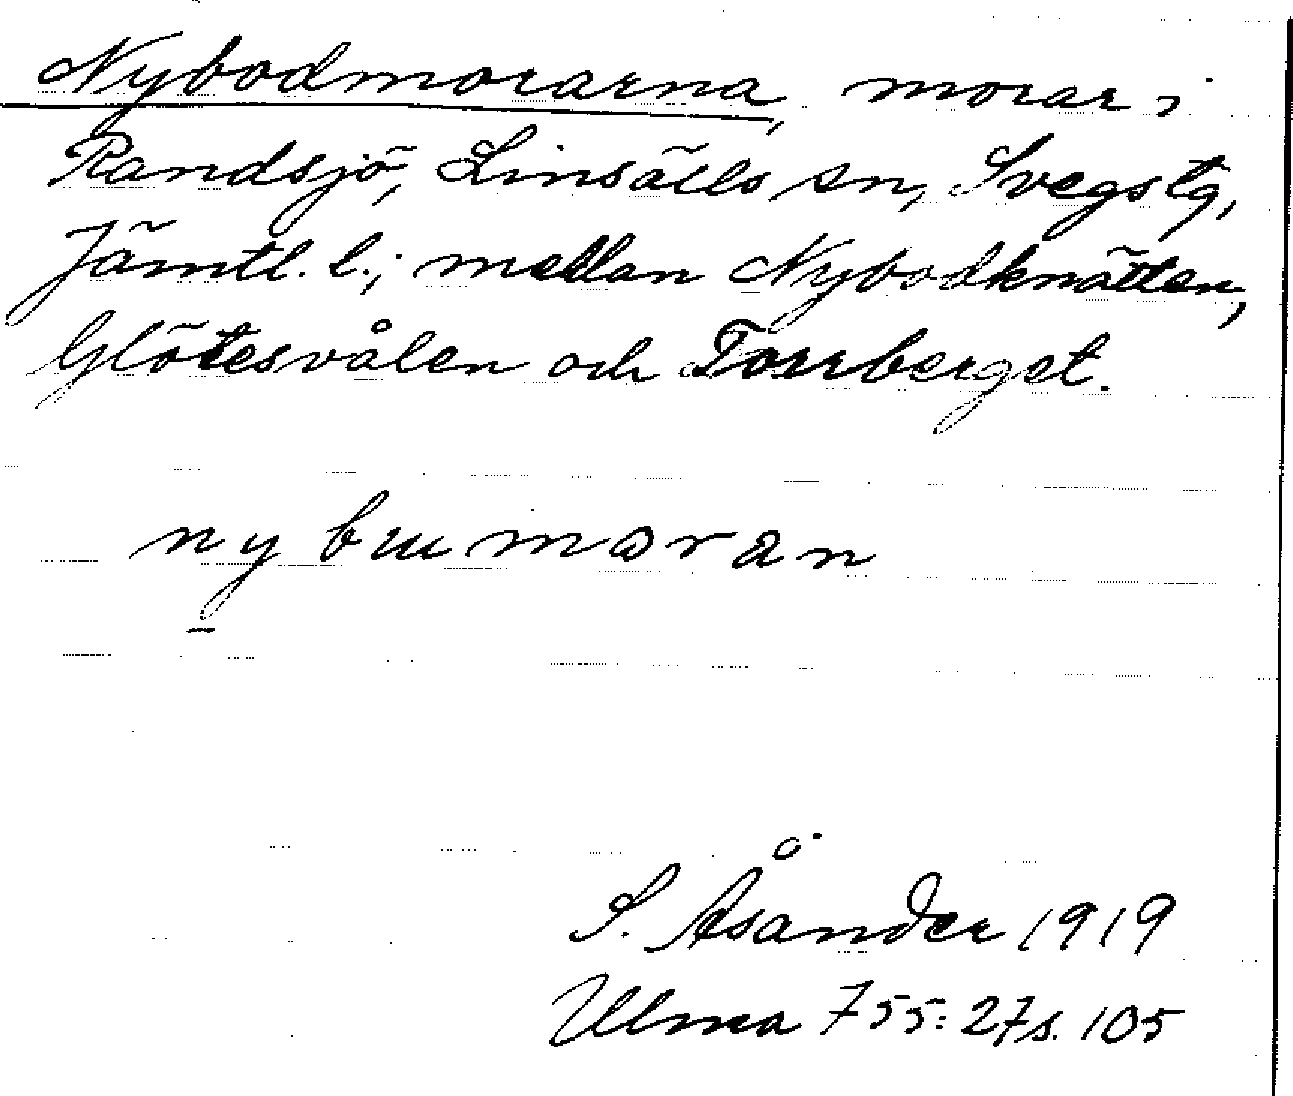 Nybodmorarna, morar i
Randsjö, Linsälls sn, Svegs tg,
Jämtl. l.; mellan Nybodknätten,
Glötesvålen och Torrberget.
ny bu moran
S. Åsander 1919
Ulma 755: 27 s. 105